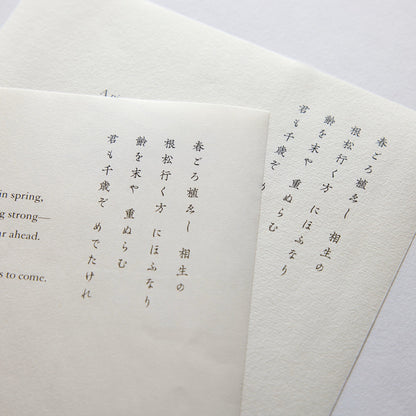 in spring,
strong—
ahead.
to come.
春ごろ植ゑし 相生の
根松行く方 にほふなり
齢を末や 重ぬらむ
君も千歳ぞ めでたけれ
春ごろ植ゑし 相生の
根松行く方 にほふなり
齢を末や
君も千歳ぞ